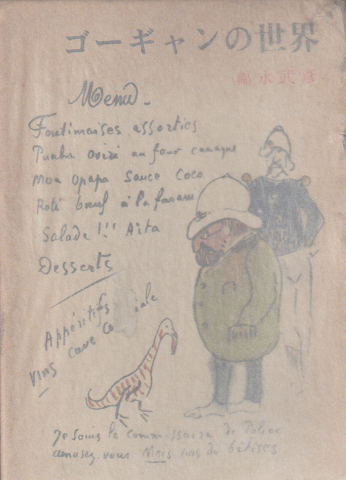 ゴーギャンの世界
福永武彦
Menu
Foutimaises assorties
Punha ovisi au four canaque
Moa Opapa Sauce Coco
Roti bœuf à la
Salade!!! Aita
Desserts
Appéritifs
Vins cave Coloniale
Je Suis le Commissaire de Police
amusez vous Mais pas de bêtises